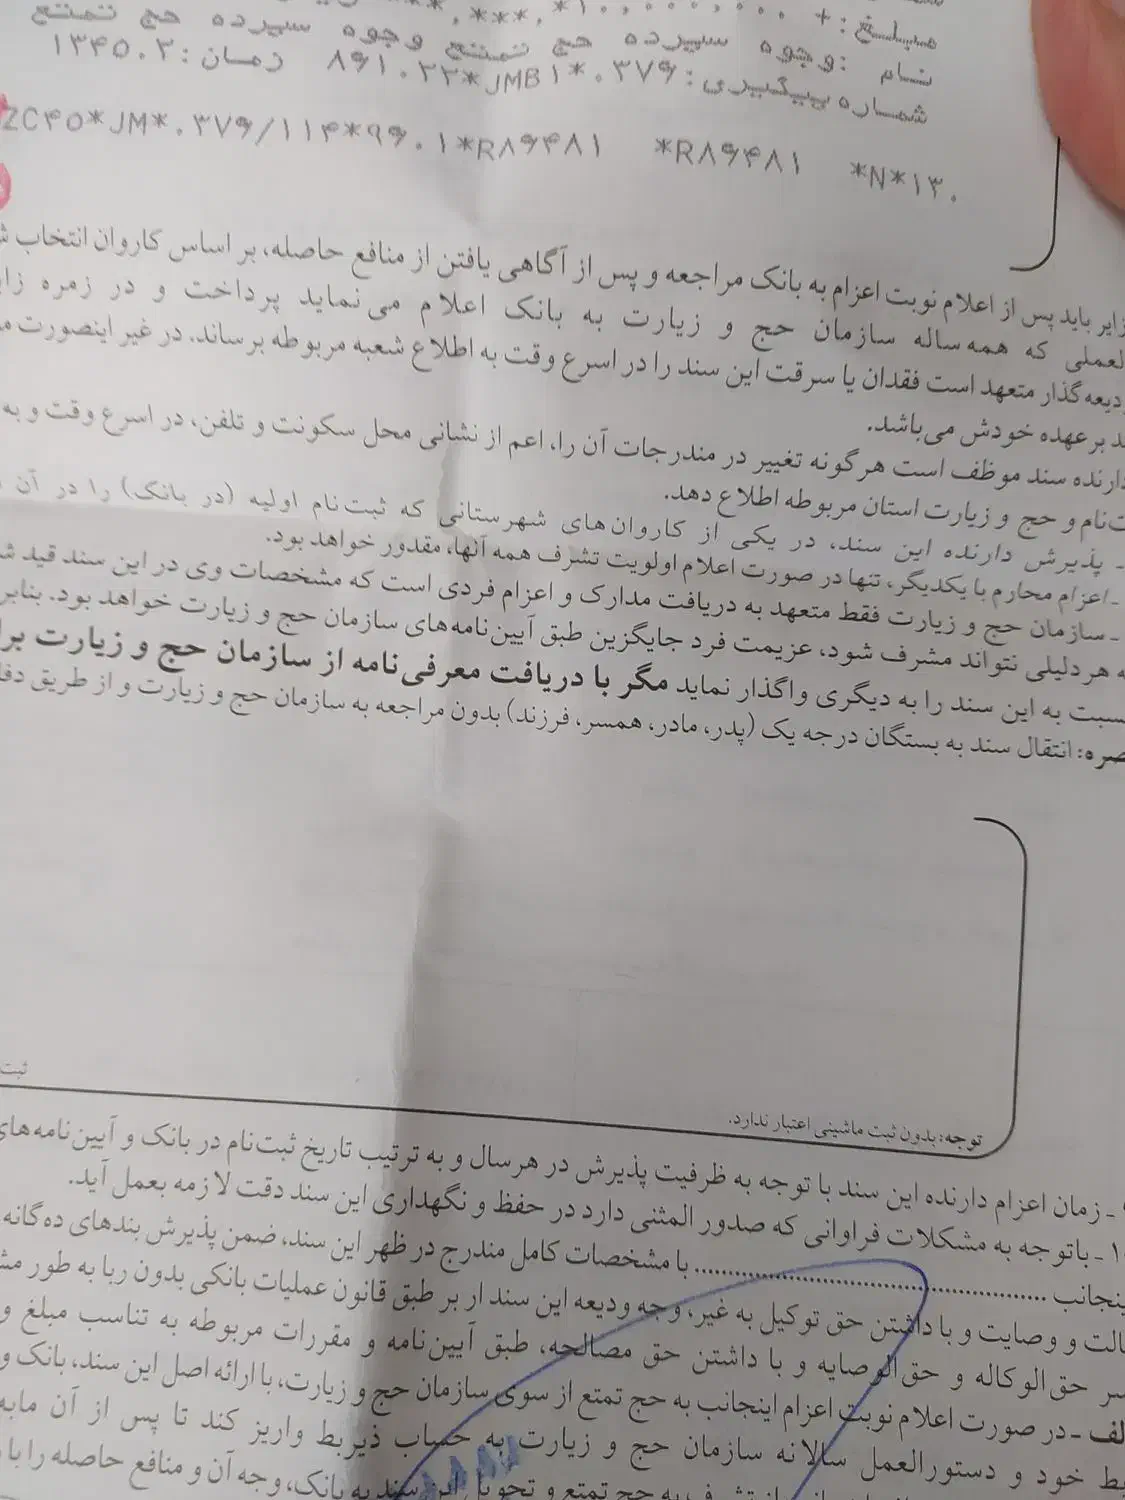 مبلغ: +
نام :وجوه سپرده حج تمتع وجوه سپرده حج تمتع
شماره پیگیری: ۸۹۱۰۲۲*JMB۱*۰۳۷۶ زمان: ۱۳۴۵۰۳
ZC۴۵*JM*۰۳۷۶/۱۱۴*۹۶۰۱*R۸۶۴۸۱ *R۸۶۴۸۱ *N*۱۳۰
زایر باید پس از اعلام نوبت اعزام به بانک مراجعه و پس از آگاهی یافتن از منافع حاصله، بر اساس کاروان انتخاب
العملی که همه ساله سازمان حج و زیارت به بانک اعلام می نماید پرداخت و در زمره
ودیعه گذار متعهد است فقدان یا سرقت این سند را در اسرع وقت به اطلاع شعبه مربوطه برساند. در غیر اینصورت
بر عهده خودش می‌باشد.
دارنده سند موظف است هر گونه تغییر در مندرجات آن را، اعم از نشانی محل سکونت و تلفن، در اسرع وقت و به
ت‌نام و حج و زیارت استان مربوطه اطلاع دهد.
ـ پذیرش دارنده این سند، در یکی از کاروان های شهرستانی که ثبت‌نام اولیه (در بانک) را در آن
ـ اعزام محارم با یکدیگر، تنها در صورت اعلام اولویت تشرف همه آنها، مقدور خواهد بود.
ـ سازمان حج و زیارت فقط متعهد به دریافت مدارک و اعزام فردی است که مشخصات وی در این سند قید
به هر دلیلی نتواند مشرف شود، عزیمت فرد جایگزین طبق آیین‌نامه‌های سازمان حج و زیارت خواهد بود. بنابر
نسبت به این سند را به دیگری واگذار نماید مگر با دریافت معرفی‌نامه از سازمان حج و زیارت
تبصره: انتقال سند به بستگان درجه یک (پدر، مادر، همسر، فرزند) بدون مراجعه به سازمان حج و زیارت و از طریق
ثبت
توجه: بدون ثبت ماشینی اعتبار ندارد.
ـ زمان اعزام دارنده این سند با توجه به ظرفیت پذیرش در هر سال و به ترتیب تاریخ ثبت‌نام در بانک و آیین‌نامه‌های
۱۰ ـ باتوجه به مشکلات فراوانی که صدور المثنی دارد در حفظ و نگهداری این سند دقت لازمه بعمل آید.
اینجانب .......................................................... با مشخصات کامل مندرج در ظهر این سند، ضمن پذیرش بندهای ده‌گانه
وکالت و وصایت و با داشتن حق توکیل به غیر، وجه ودیعه این سند را بر طبق قانون عملیات بانکی بدون ربا به طور
کسر حق الوکاله و حق‌الوصایه و با داشتن حق مصالحه، طبق آیین‌نامه و مقررات مربوطه به تناسب مبلغ و
الف ـ در صورت اعلام نوبت اعزام اینجانب به حج تمتع از سوی سازمان حج و زیارت، با ارائه اصل این سند، بانک
خود و دستورالعمل سالانه سازمان حج و زیارت به حساب ذیربط واریز کند تا پس از آن
به حج تمتع و تحویل این سند به بانک، وجه آن و منافع حاصله را